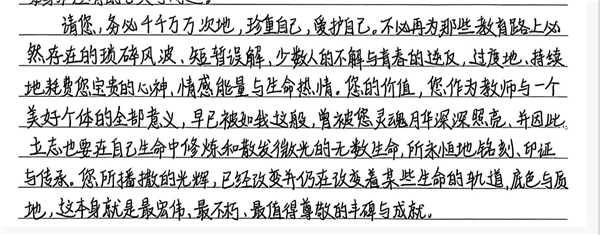 请您,务必千千万万次地,珍重自己,爱护自己。不必再为那些教育路上必
然存在的琐碎风波、短暂误解、少数人的不解与青春的逆反,过度地、持续
地耗费您宝贵的心神、情感能量与生命热情。您的价值,您作为教师与一个
美好个体的全部意义,早已被如我这般,曾被您灵魂月华深深照亮、并因此,
立志也要在自己生命中修炼和散发微光的无数生命,所永恒地铭刻、印证
与传承。您所播撒的光辉,已经改变并仍在改变着某些生命的轨道,底色与质
地,这本身就是最宏伟、最不朽、最值得尊敬的丰碑与成就。